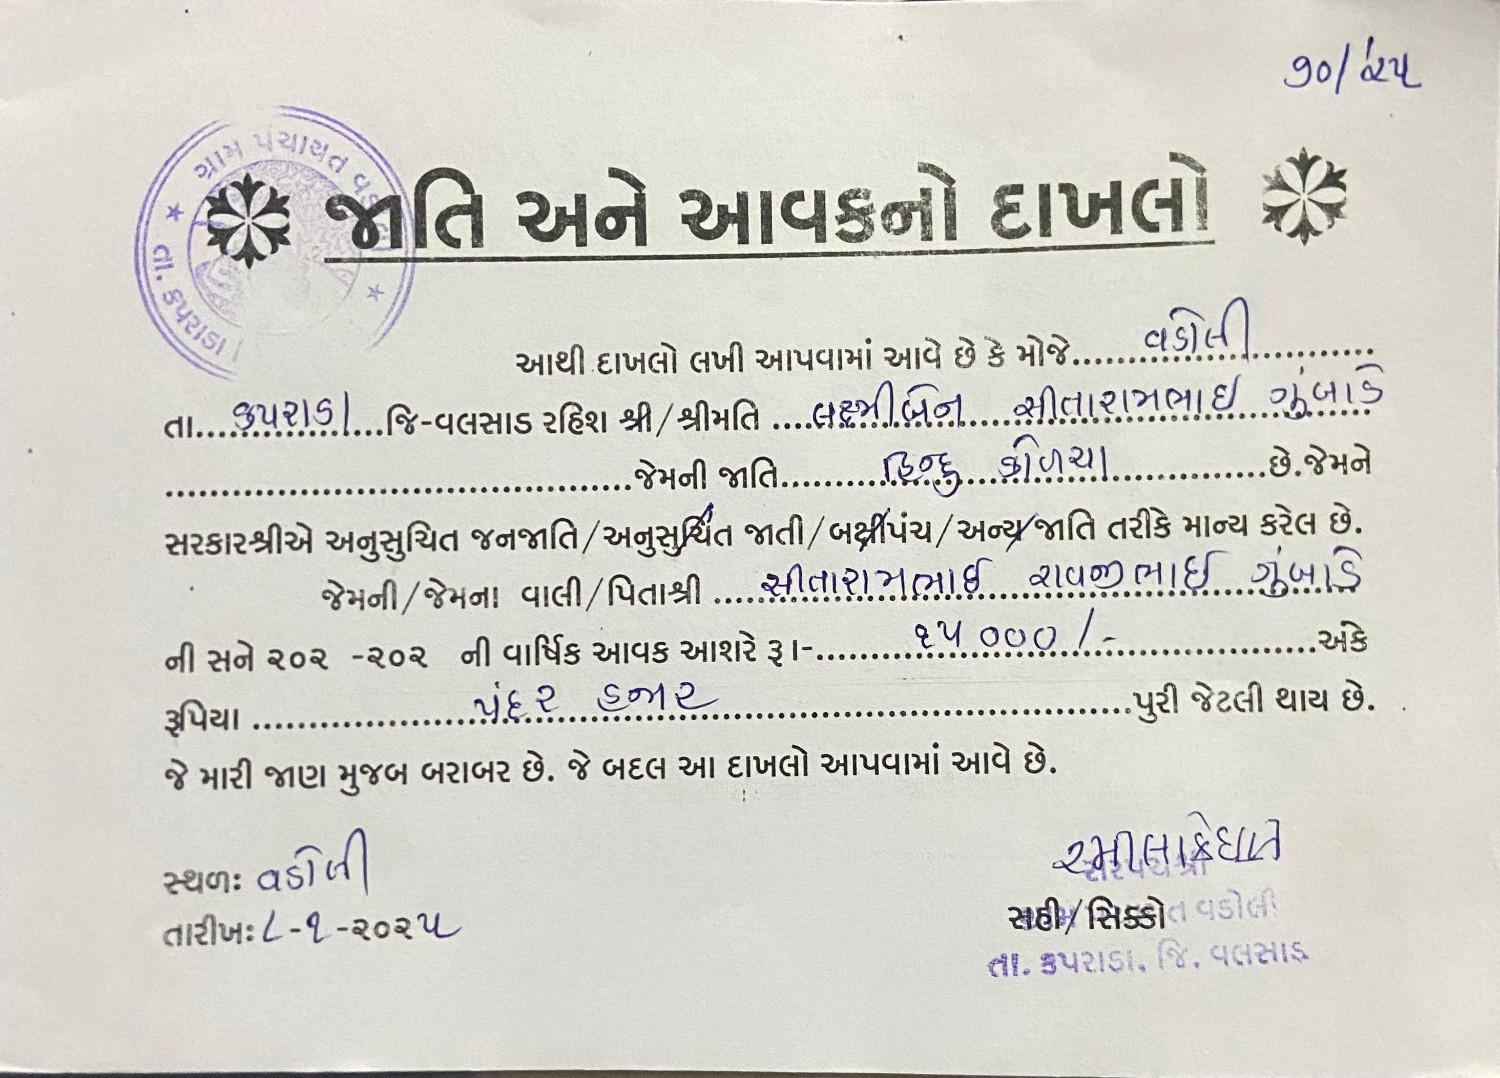 ૧૦/૨૫
ગ્રામ પંચાયત વડોલી
તા. કપરાડા
જાતિ અને આવકનો દાખલો
આથી દાખલો લખી આપવામાં આવે છે કે મોજે......વડોલી..............
તા....કપરાડા...જિ-વલસાડ રહિશ શ્રી/શ્રીમતિ ....લક્ષ્મીબેન....સીતારામભાઇ ગુંબાડે
......................................જેમની જાતિ.........હિન્દુ કોળચા.............છે.જેમને
સરકારશ્રીએ અનુસુચિત જનજાતિ/અનુસુચિત જાતી/બક્ષીપંચ/અન્ય જાતિ તરીકે માન્ય કરેલ છે.
જેમની/જેમના વાલી/પિતાશ્રી ....સીતારામભાઈ રાવજીભાઈ ગુંબાડે
ની સને ૨૦૨ -૨૦૨ ની વાર્ષિક આવક આશરે રૂા-........૧૫૦૦૦/-.................અંકે
રૂપિયા ..................પંદર હજાર...................................પુરી જેટલી થાય છે.
જે મારી જાણ મુજબ બરાબર છે. જે બદલ આ દાખલો આપવામાં આવે છે.
સ્થળઃ વડોલી
તારીખઃ ૮-૧-૨૦૨૫
સરપંચશ્રી
સહી/સિક્કો
વડોલી
તા. કપરાડા, જિ. વલસાડ